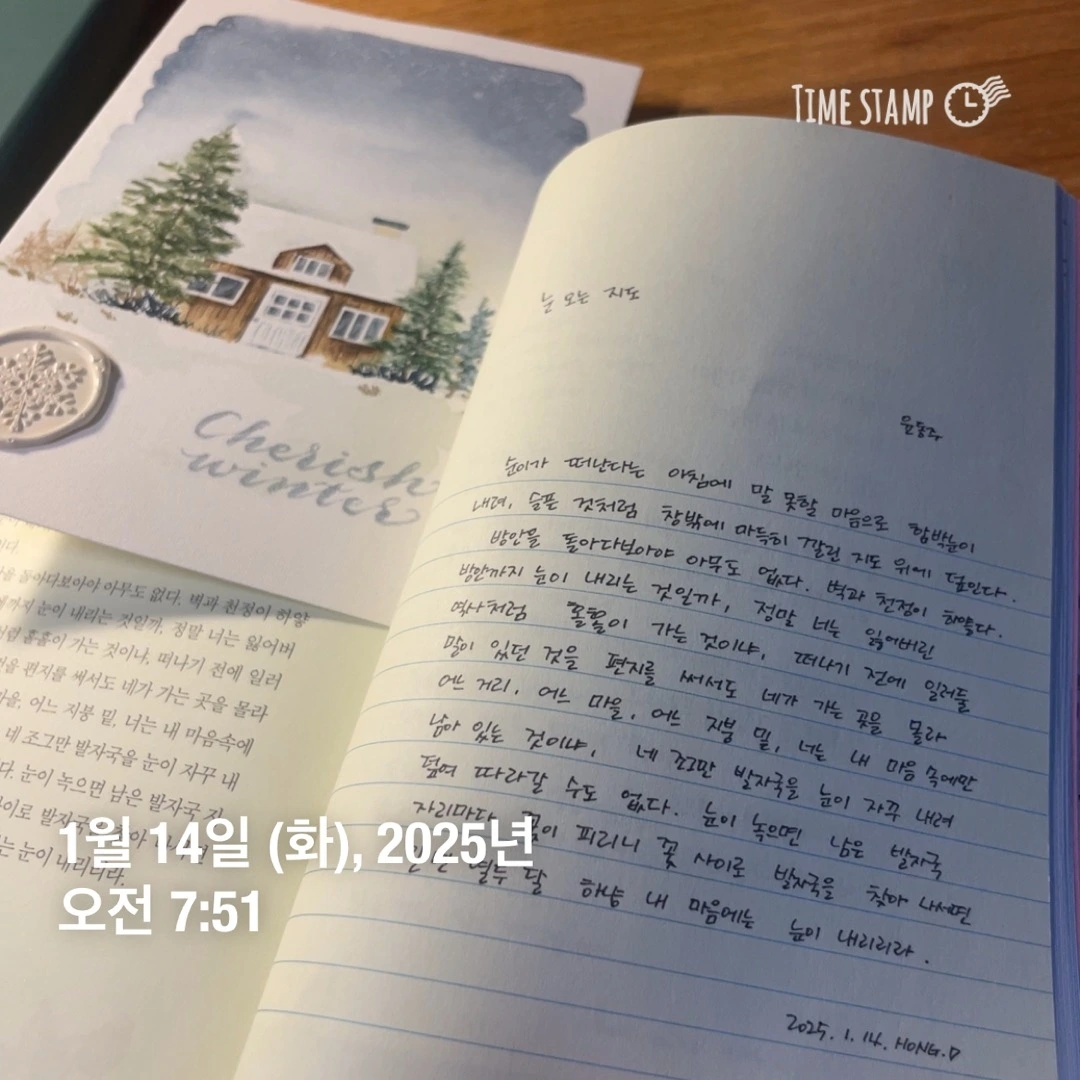 TIME STAMP
Cherish
winter
눈 오는 지도
윤동주
눈이가 떠난다는 아침에 말 못할 마음으로 함박눈이
내려, 슬픈 것처럼 창밖에 아득히 깔린 지도 위에 덮인다.
방안을 돌아다보아야 아무도 없다. 벽과 천정이 하얗다.
방안까지 눈이 내리는 것일까, 정말 너는 잃어버린
역사처럼 홀홀이 가는 것이냐, 떠나기 전에 일러둘
말이 있던 것을 편지를 써서도 네가 가는 곳을 몰라
어느 거리, 어느 마을, 어느 지붕 밑, 너는 내 마음 속에만
남아 있는 것이냐, 네 조그만 발자국을 눈이 자꾸 내려
덮여 따라갈 수도 없다. 눈이 녹으면 남은 발자국
자리마다 꽃이 피리니 꽃 사이로 발자국을 찾아 나서면
열두 달 하냥 내 마음에는 눈이 내리리라.
2025. 1. 14. HONG.D
돌아다보아야 아무도 없다. 벽과 천정이 하얗
까지 눈이 내리는 것일까, 정말 너는 잃어버
럼 홀홀이 가는 것이냐, 떠나기 전에 일러
을 편지를 써서도 네가 가는 곳을 몰라
을, 어느 지붕 밑, 너는 내 마음속에
네 조그만 발자국을 눈이 자꾸 내
다. 눈이 녹으면 남은 발자국
이로 발자국을
눈이 내리리라.
1월 14일 (화), 2025년
오전 7:51